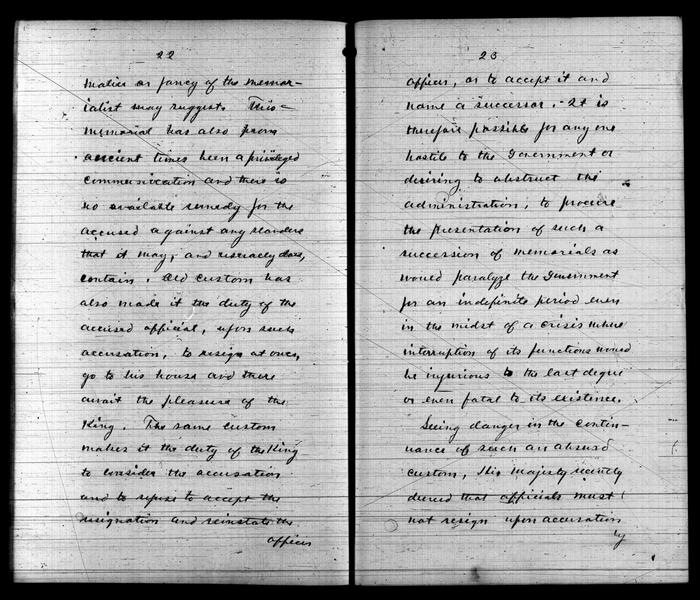 22
malice or fancy of the memor-
ialist may suggest. This-
memorial has also from
ancient times been a privileged
communication and there is
no available remedy for the
accused against any slanders
that it may, and usually does,
contain. Old custom has
also made it the duty of the
accused official, upon such
accusation, to resign at once,
go to his house and there
await the pleasure of the
King. The same custom
makes it the duty of the King
to consider the accusation
and to refuse to accept the
resignation and reinstate the
officer
23
officer, or to accept it and
name a successor. - It is
therefore possible for any one
hostile to the Government or
desiring to obstruct the
administration, to procure
the presentation of such a
succession of memorials as
would paralyze the Government
for an indefinite period even
in the midst of a crisis where
interruption of its functions would
be injurious to the last degree
or even fatal to its existence.
Seeing danger in the contin-
uance of such an absurd
custom, His Majesty recently
decreed that officials must
not resign upon accusation
by